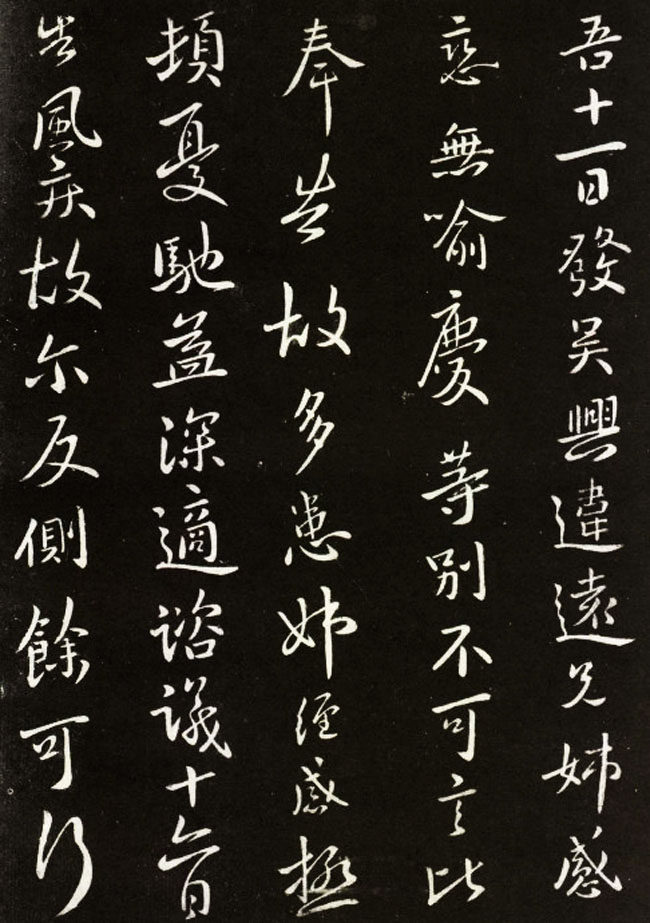 吾十一日發吳興違遠兄姊感
戀無喻慶等別不可言比
奉告故多患姊經感極
頓憂馳益深適諮議十六日
告風疾故尓反側餘可行